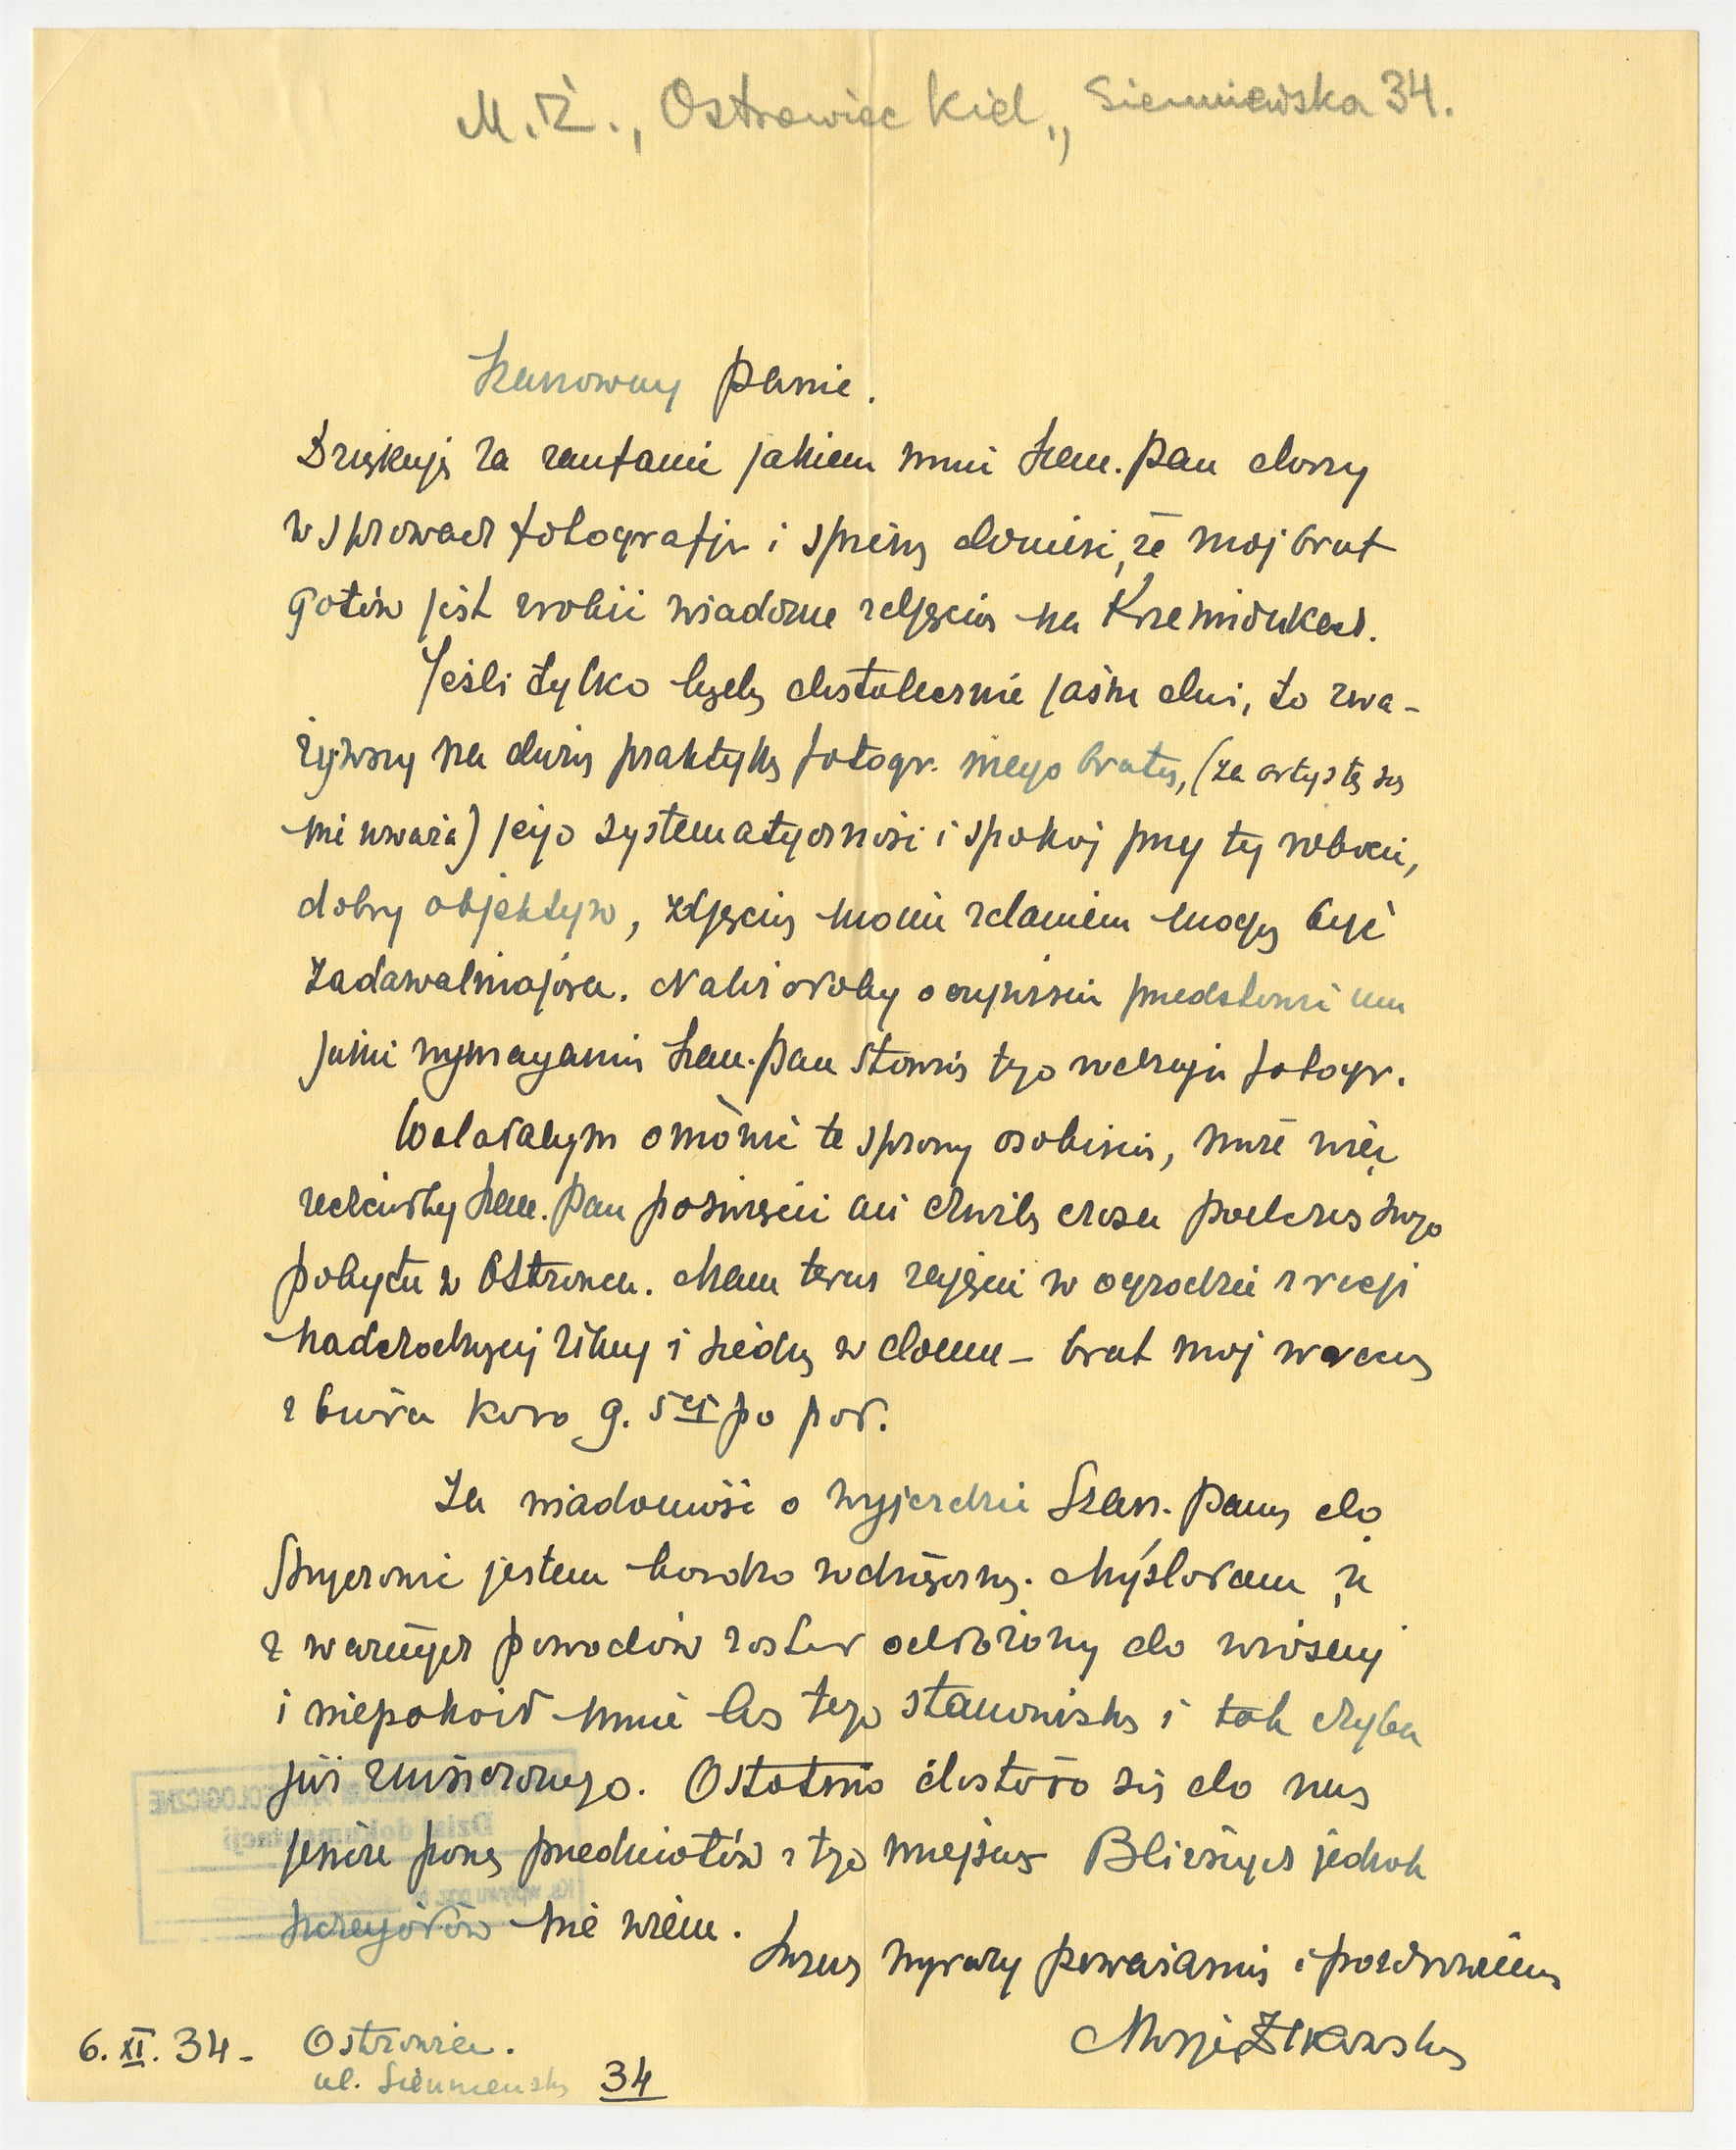 M. Ż., Ostrowiec Kiel., Sienniewska 34.
Szanowny Panie.
Dziękuję za zaufanie jakiem mnie Szan. Pan darzy
w sprawach fotografji i spieszę donieść, że mój brat
gotów jest zrobić wiadome zdjęcia na Krzemionkach.
Jeśli tylko będą dostatecznie jasne dni, to zwa-
żywszy na dużą praktykę fotogr. mego brata, (za artystę się
nie uważa) jego systematyczność i spokój przy tej robocie,
dobry objektyw, zdjęcia moim zdaniem mogą być
zadawalniające. Należałoby oczywiście przedstawić mu
jakie wymagania Szan. Pan stawia tego rodzaju fotogr.
Wolałabym omówić te sprawy osobiście, może więc
zechciałby Szan. Pan poświęcić mi chwilę czasu podczas swego
pobytu w Ostrowcu. Mam teraz zajęcie w ogrodzie z racji
nadchodzącej zimy i siedzę w domu – brat mój wraca
z biura koło g. 5ej po poł.
Za wiadomość o wyjeździe Szan. Pana do
jestem bardzo wdzięczna. Myślałam, że
z ważnych powodów został odłożony do wiosny
i niepokoił mnie los tego stanowiska i tak chyba
już zniszczonego. Ostatnio dostało się do nas
jeszcze parę przedmiotów z tego miejsca. Bliższych jednak
szczegółów nie wiem.
Łączę wyrazy poważania i pozdrowienia
6. XI. 34 – Ostrowiec.
ul. Sienieńska 34
Dział dokumentacji